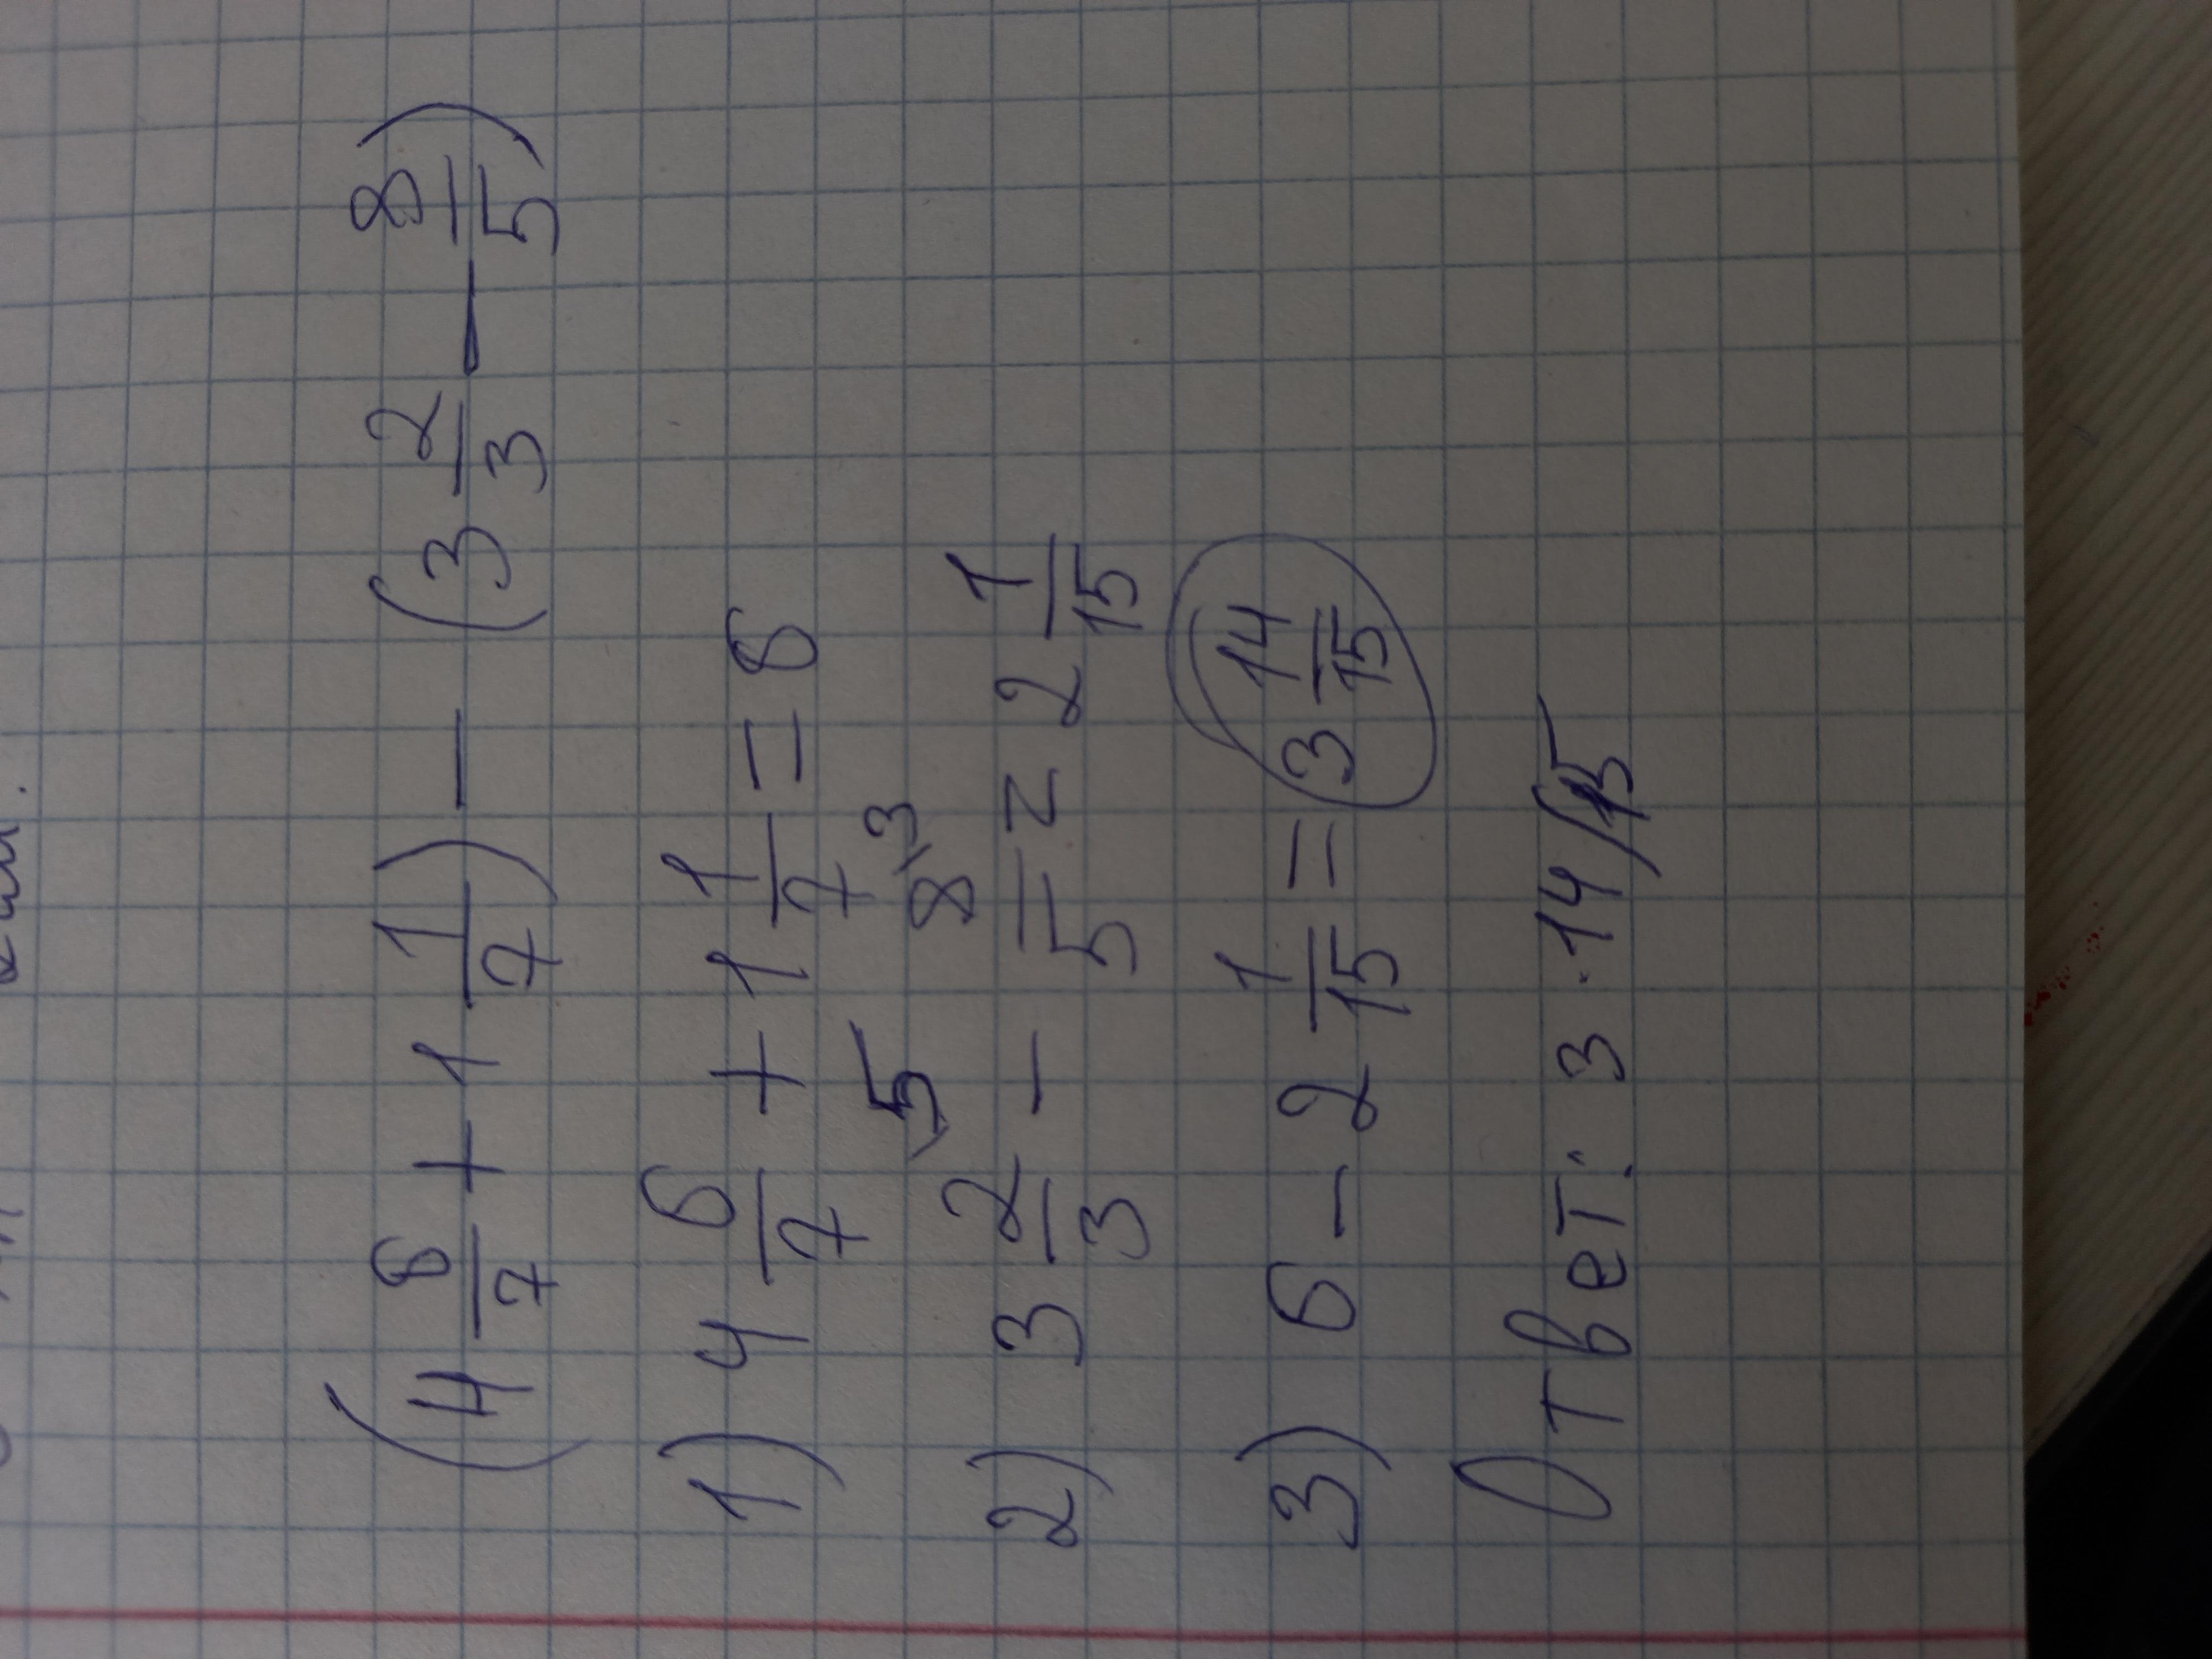 (4 6/7 + 1 1/7) - (3 2/3 - 8/5)
1) 4 6/7 + 1 1/7 = 6
2) 3 2\5/3 - 8\3/5 = 2 1/15
3) 6 - 2 1/15 = 3 14/15
Ответ: 3 . 14/15